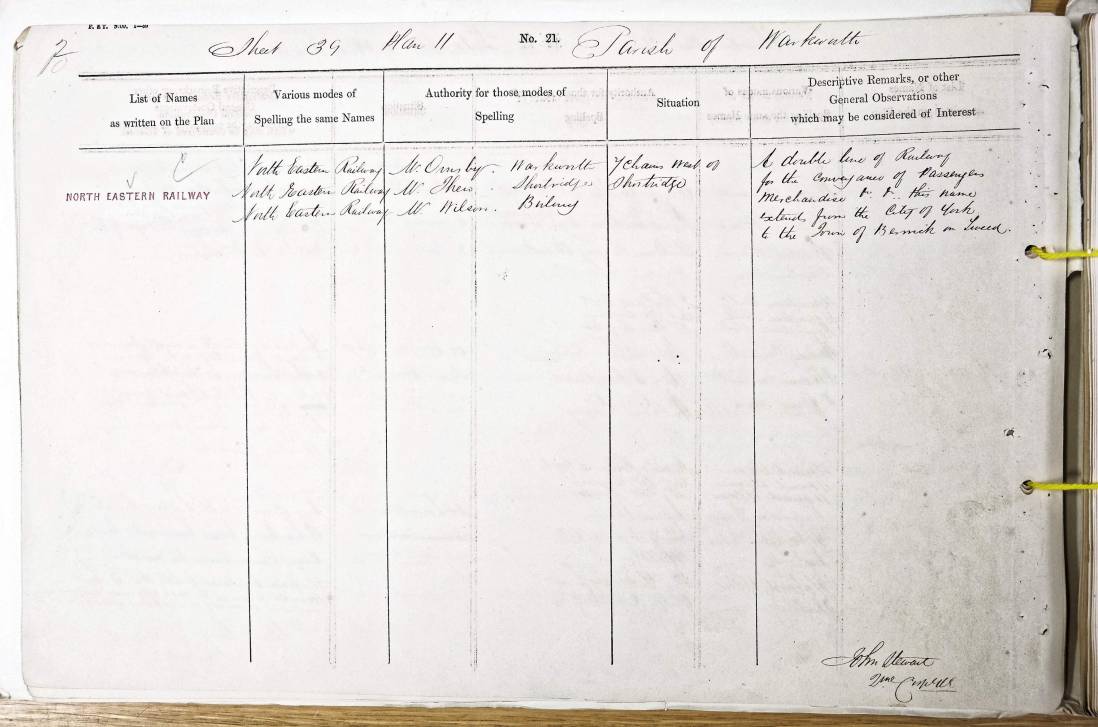 Sheet 39 Plan 11 No. 21. Parish of Warkworth
List of Names
as written on the Plan
Various modes of
Spelling the same Names
Authority for those modes of
Spelling
Situation
Descriptive Remarks, or other
General Observations
which may be considered of Interest
NORTH EASTERN RAILWAY
North Eastern Railway
North Eastern Railway
North Eastern Railway
Mr. Ornsby. Warkworth
Mr. Thew. Shortridge
Mr. Wilson. Buluey
7 Chains West of
Shortridge
A double line of Railway
for the conveyance of Passengers
Merchandise &c. &c. this name
extends from the City of York
to the Town of Berwick on Tweed.
John Stewart